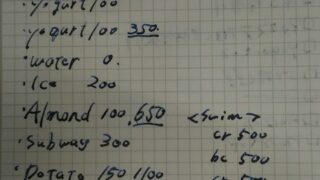 ·Yogurt 100
·yogurt 100 350
·water 0.
·Ice 200
·Almond 100.650
·Subway 300
·Potato 150 1100
<Swim>
cr 500
bc 500
cr 500